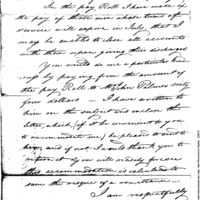 In this pay Roll I have made up
the pay of those men whose times of
service will expire in July, that I
may be enabled to close all accounts
with them upon giving their discharges
You would do me a particular kind-
ness by paying from the amount of
the pay Roll to Mr. Palmer only
four dollars — I have written to
him on the subject and enclose this
letter, which, if it be convenient to you
to accommodate me, be pleased to send to
him, and if not I would thank you to
return it by
this accommodation is calculated to
save the risque of a remittance —
I am respectfully